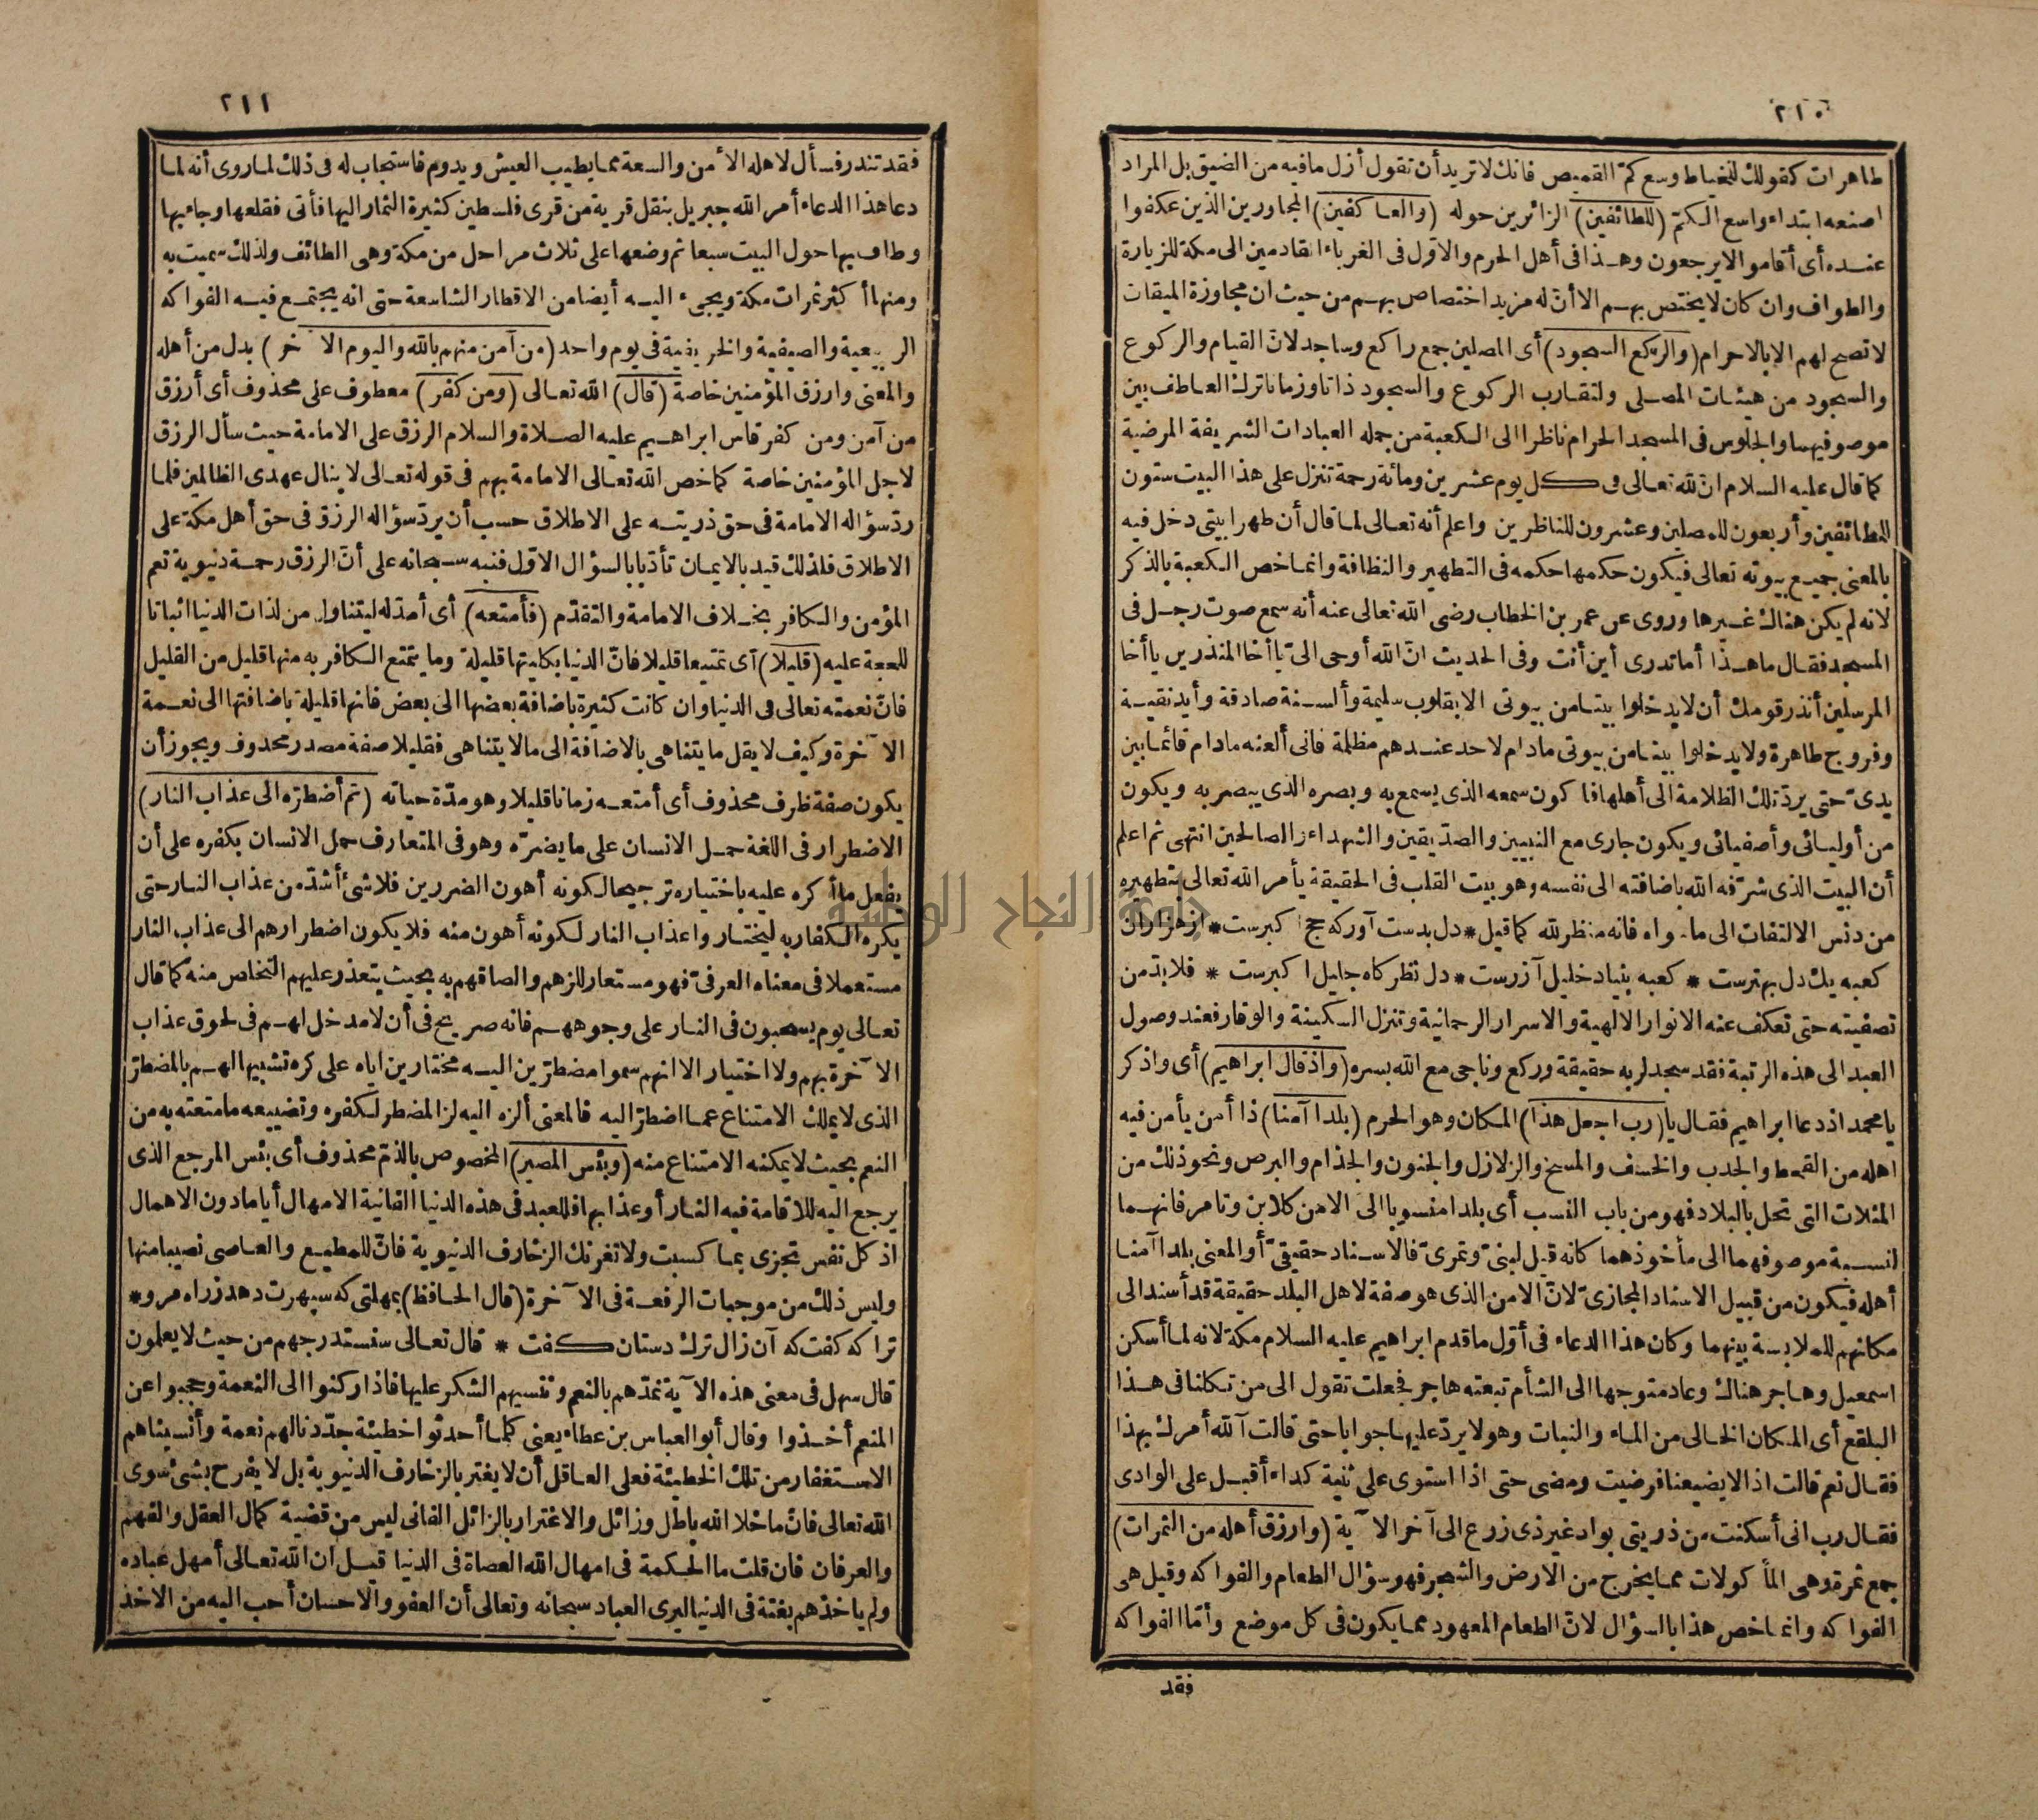 ٢١٠
طاهرات كقولك للخياط وسع كمّ القميص فانك لا تريد أن تقول أزل ما فيه من الضيق بل المراد
اصنعه ابتداء واسع الكمّ (للطائفين) الزائرين حوله (والعاكفين) المجاورين الذين عكفوا
عنده أى أقاموا لا يرجعون وهذا فى أهل الحرم والاوّل فى الغرباء القادمين الى مكة للزيارة
والطواف وان كان لا يختص بهم الا أنّ له مزيد اختصاص بهم من حيث ان مجاوزة الميقات
لا تصح لهم الا بالاحرام (والركع السجود) أى المصلين جمع راكع وساجد لانّ القيام والركوع
والسجود من هيئات المصلى ولتقارب الركوع والسجود ذاتا وزمانا ترك العاطف بين
موصوفيهما والجلوس فى المسجد الحرام ناظرا الى الكعبة من جملة العبادات الشريفة المرضية
كما قال عليه السلام انّ لله تعالى فى كل يوم عشرين ومائة رحمة تنزل على هذا البيت ستون
للطائفين وأربعون للمصلين وعشرون للناظرين واعلم أنه تعالى لما قال أن طهرا بيتى دخل فيه
بالمعنى جميع بيوته تعالى فيكون حكمها حكمه فى التطهير والنظافة وانما خص الكعبة بالذكر
لانه لم يكن هناك غيرها وروى عن عمر بن الخطاب رضى الله تعالى عنه أنه سمع صوت رجل فى
المسجد فقال ما هذا أما تدرى أين أنت وفى الحديث انّ الله أوحى الىّ يا أخا المنذرين يا أخا
المرسلين أنذر قومك أن لا يدخلوا بيتا من بيوتى الا بقلوب سليمة وألسنة صادقة وأيد نقية
وفروج طاهرة ولا يدخلوا بيتا من بيوتى مادام لاحد عندهم مظلمة فانى ألعنه مادام قائما بين
يدىّ حتى يردّ تلك الظلامة الى أهلها فاكون سمعه الذى يسمع به وبصره الذى يبصر به ويكون
من أوليائى وأصفيائى ويكون جارى مع النبيين والصدّيقين والشهداء والصالحين انتهى ثم اعلم
أن البيت الذى شرّفه الله باضافته الى نفسه وهو بيت القلب فى الحقيقة يأمر الله تعالى بتطهيره
من دنس الالتفات الى ما سواه فانه منظر لله كما قيل * دل بدست آور كه حج اكبرست * از هزاران
كعبه يك دل بهترست * كعبه بنياد خليل آزرست * دل نظركاه جليل اكبرست * فلا بدّ من
تصفيته حتى تعكف عنه الانوار الالهية والاسرار الرحمانية وتنزل السكينة والوقار فعند وصول
العبد الى هذه الرتبة فقد سجد لربه حقيقة وركع وناجى مع الله بسره (واذ قال ابراهيم) أى واذكر
يا محمد اذ دعا ابراهيم فقال يا (رب اجعل هذا) المكان وهو الحرم (بلدا آمنا) ذا أمن يأمن فيه
اهله من القحط والجدب والخسف والمسخ والزلازل والجنون والجذام والبرص ونحو ذلك من
المثلات التى تحل بالبلاد فهو من باب النسب أى بلدا منسوبا الى الامن كلابن وتامر فانهما
لنسبة موصوفهما الى مأخوذهما كانه قيل لبنىّ وتمرىّ فالاسناد حقيقىّ أو المعنى بلدا آمنا
أهله فيكون من قبيل الاسناد المجازىّ لانّ الامن الذى هو صفة لاهل البلد حقيقة قد أسند الى
مكانهم للملابسة بينهما وكان هذا الدعاء فى أوّل ما قدم ابراهيم عليه السلام مكة لانه لما أسكن
اسمعيل وهاجر هناك وعاد متوجها الى الشأم تبعته هاجر فجعلت تقول الى من تكلنا فى هذا
البلقع أى المكان الخالى من الماء والنبات وهو لا يردّ عليها جوابا حتى قالت آلله أمرك بهذا
فقال نعم قالت اذا لا يضيعنا فرضيت ومضى حتى اذا استوى على ثنية كداء أقبل على الوادى
فقال رب انى أسكنت من ذريتى بواد غير ذى زرع الى آخر الآية (وارزق أهله من الثمرات)
جمع ثمرة وهى المأكولات مما يخرج من الارض والشجر فهو سؤال الطعام والفواكه وقيل هى
الفواكه وانما خص هذا بالسؤال لانّ الطعام المعهود مما يكون فى كل موضع وأمّا الفواكه
فقد
٢١١
فقد تندر فسأل لاهله الأمن والسعة مما يطيب العيش ويدوم فاستجاب له فى ذلك لما روى أنه لما
دعا هذا الدعاء أمر الله جبريل بنقل قرية من قرى فلسطين كثيرة الثمار اليها فأتى فقلعها وجاء بها
وطاف بها حول البيت سبعا ثم وضعها على ثلاث مراحل من مكة وهى الطائف ولذلك سميت به
ومنها أكثر ثمرات مكة ويجىء اليه أيضا من الاقطار الشاسعة حتى انه يجتمع فيه الفواكه
الربيعية والصيفية والخريفية فى يوم واحد (من آمن منهم بالله واليوم الآخر) بدل من أهله
والمعنى وارزق المؤمنين خاصة (قال) الله تعالى (ومن كفر) معطوف على محذوف أى أرزق
من آمن ومن كفر قاس ابراهيم عليه الصلاة والسلام الرزق على الامامة حيث سأل الرزق
لاجل المؤمنين خاصة كما خص الله تعالى الامامة بهم فى قوله تعالى لا ينال عهدى الظالمين فلما
ردّ سؤاله الامامة فى حق ذريته على الاطلاق حسب أن يردّ سؤاله الرزق فى حق أهل مكة على
الاطلاق فلذلك قيد بالايمان تأدّبا بالسؤال الاوّل فنبه سبحانه على أنّ الرزق رحمة دنيوية تعم
المؤمن والكافر بخلاف الامامة والتقدّم (فأمتعه) أى أمدّ له ليتناول من لذات الدنيا اثباتا
للحجة عليه (قليلا) أى تمتيعا قليلا فانّ الدنيا بكليتها قليلة وما يتمتع الكافر به منها قليل من القليل
فانّ نعمته تعالى فى الدنيا وان كانت كثيرة باضافة بعضها الى بعض فانها قليلة باضافتها الى نعمة
الآخرة وكيف لا يقل ما يتناهى بالاضافة الى ما لا يتناهى فقليلا صفة مصدر محذوف ويجوز أن
يكون صفة ظرف محذوف أى أمتعه زمانا قليلا وهو مدّة حياته (ثم أضطرّه الى عذاب النار)
الاضطرار فى اللغة حمل الانسان على ما يضرّه وهو فى المتعارف حمل الانسان بكفره على أن
يفعل ما أكره عليه باختياره ترجيحا لكونه أهون الضررين فلا شئ أشدّ من عذاب النار حتى
يكره الكفار به ليختاروا عذاب النار لكونه أهون منه فلا يكون اضطرارهم الى عذاب النار
مستعملا فى معناه العرفىّ فهو مستعار للزهم والصاقهم به بحيث يتعذر عليهم التخلص منه كما قال
تعالى يوم يسحبون فى النار على وجوههم فانه صريح فى أن لا مدخل لهم فى لحوق عذاب
الآخرة بهم ولا اختيار الا انهم سموا مضطرّين اليه مختارين اياه على كره تشبيها لهم بالمضطرّ
الذى لا يملك الامتناع عما اضطرّ اليه فالمعنى ألزه اليه لز المضطر لكفره وتضييعه ما متعته به من
النعم بحيث لا يمكنه الامتناع منه (وبئس المصير) المخصوص بالذمّ محذوف أى بئس المرجع الذى
يرجع اليه للاقامة فيه النار أو عذابها فللعبد فى هذه الدنيا الفانية الامهال أياما دون الاهمال
اذ كل نفس تجزى بما كسبت ولا تغرنك الزخارف الدنيوية فانّ للمطيع والعاصى نصيبا منها
وليس ذلك من موجبات الرفعة فى الآخرة (قال الحافظ) بمهلتى كه سپهرت دهد زراه مرو *
تراكه كفت كه آن زال ترك دستان كفت * قال تعالى سنستدرجهم من حيث لا يعلمون
قال سهل فى معنى هذه الآية نمدّهم بالنعم وننسيهم الشكر عليها فاذا ركنوا الى النعمة وحجبوا عن
المنعم أخذوا وقال أبو العباس بن عطاء يعنى كلما أحدثوا خطيئة جدّدنا لهم نعمة وأنسيناهم
الاستغفار من تلك الخطيئة فعلى العاقل أن لا يغتر بالزخارف الدنيوية بل لا يفرح بشئ سوى
الله تعالى فانّ ما خلا الله باطل وزائل والاغترار بالزائل الفانى ليس من قضية كمال العقل والفهم
والعرفان فان قلت ما الحكمة فى امهال الله العصاة فى الدنيا قيل ان الله تعالى أمهل عباده
ولم ياخذهم بغتة فى الدنيا ليرى العباد سبحانه وتعالى أن العفو والاحسان أحب اليه من الاخذ
جامعة النجاح الوطنية